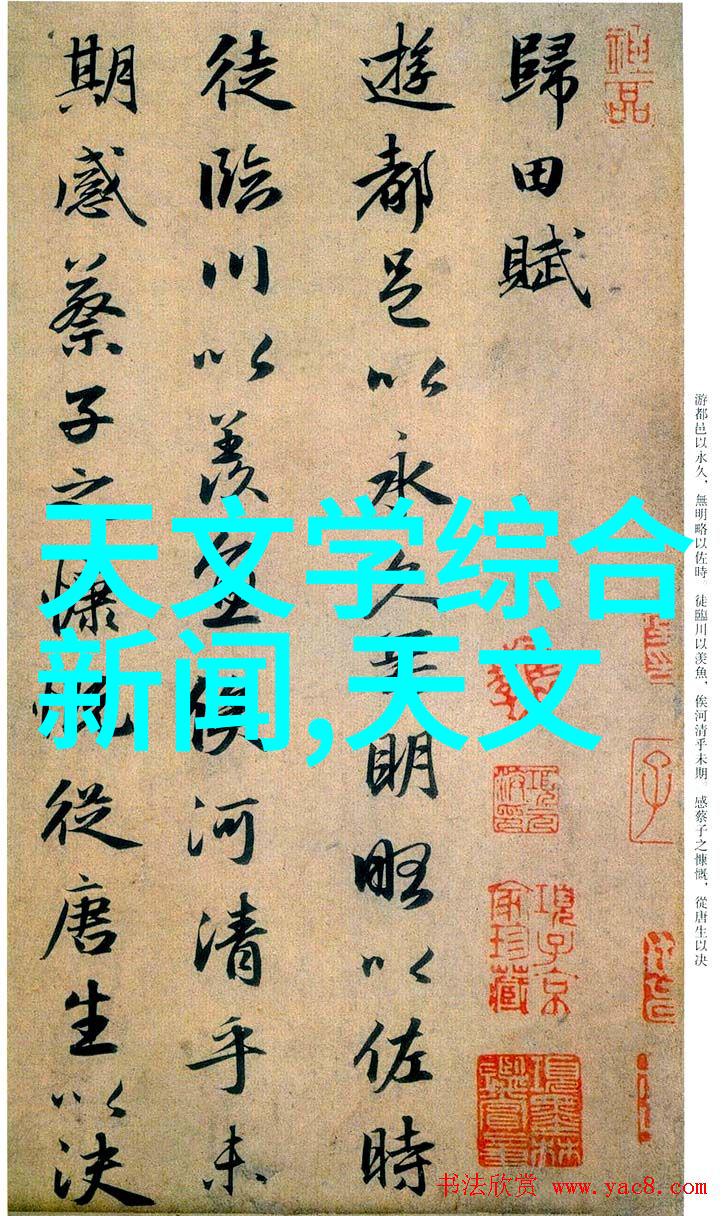 天文学综合
新闻,天文
神品
歸田賦
遊都邑以永久無明略以佐時
徒臨川以羨魚俟河清乎未
期感蔡子之慷慨從唐生以決
項子京家珍藏
項墨林鑑賞章
游都邑以永久，無明略以佐時。徒臨川以羨魚，俟河清乎未期。感蔡子之慷慨，從唐生以决
书法欣赏 www.yac8.com